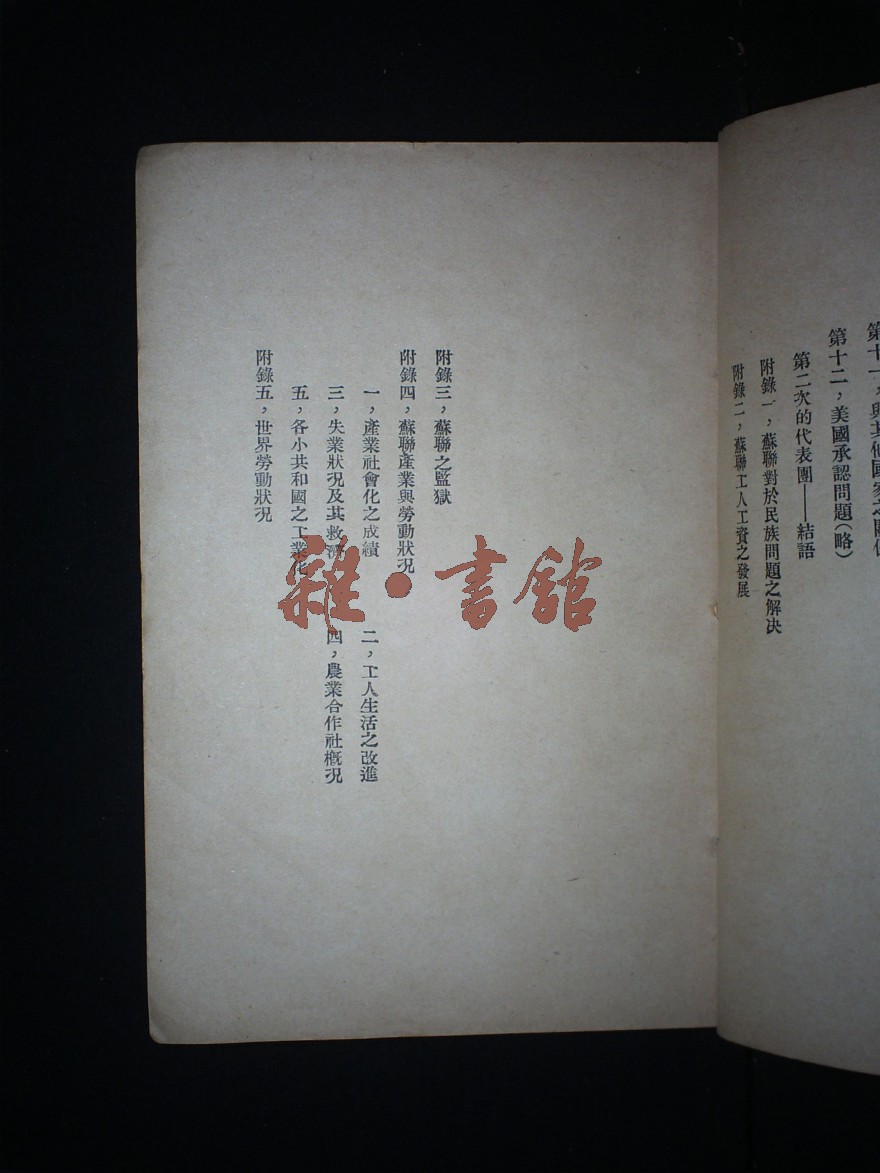 第十一，與其他國家之關係
第十二，美國承認問題（略）
第二次的代表團——結語
附錄一，蘇聯對於民族問題之解決
附錄二，蘇聯工人工資之發展
附錄三，蘇聯之監獄
附錄四，蘇聯產業與勞動狀況
一，產業社會化之成績　二，工人生活之改進
三，失業狀況及其救濟　四，農業合作社概况
五，各小共和國之工業化
附錄五，世界勞動狀况
雜·書館